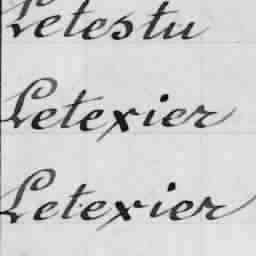 Letestu
Letexier
Letexier